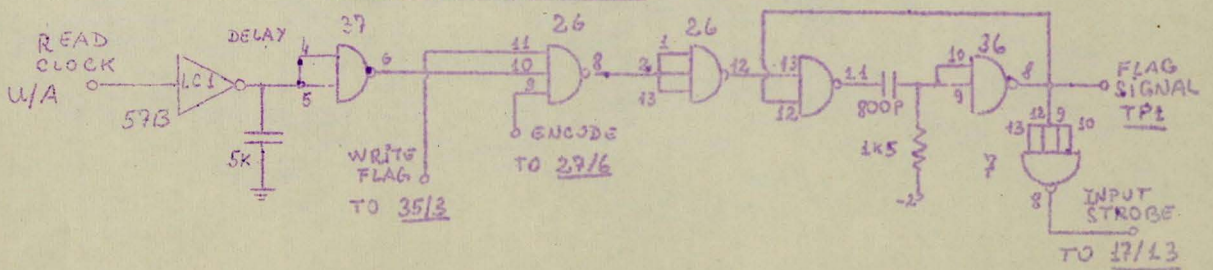 READ
CLOCK
U/A
LC1
57B
DELAY
5K
4
5
37
6
WRITE
FLAG
TO 35/3
11
10
9
26
8
ENCODE
TO 27/6
1
2
13
26
12
13
12
11
800P
1K5
-2
10
9
36
8
FLAG
SIGNAL
TP1
13 12 9 10
7
8
INPUT
STROBE
TO 17/13